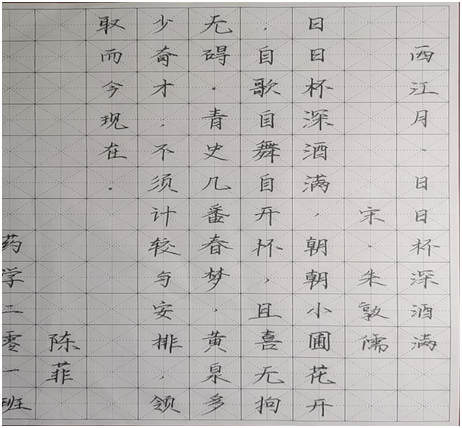 西江月·日日杯深酒满
宋·朱敦儒
日日杯深酒满，朝朝小圃花开
。自歌自舞自开怀，且喜无拘
无碍。青史几番春梦，黄泉多
少奇才。不须计较与安排，领
取而今现在。
陈菲
药学二零一班